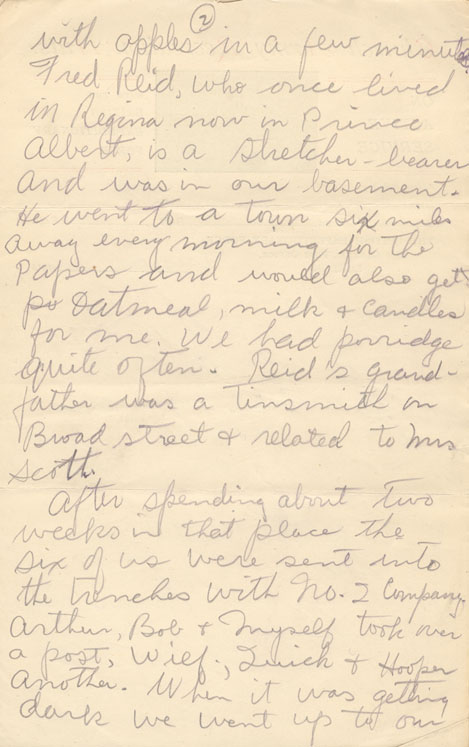 2
with apples in a few minutes
Fred Reid, who once lived
in Regina now in Prince
Albert, is a stretcher-bearer
and was in our basement.
He went to a town six miles
away every morning for the
Papers and would also get
Oatmeal, milk & candles
for me. We had porridge
quite often. Reid's grand-
father was a tinsmith on
Broad street & related to Mrs
Scott.
After spending about two
weeks in that place the
six of us were sent into
the trenches with No. 2 Company.
Arthur, Bob & myself took over
a post, Wilf., Quick & Hooper
another. When it was getting
dark we went up to our